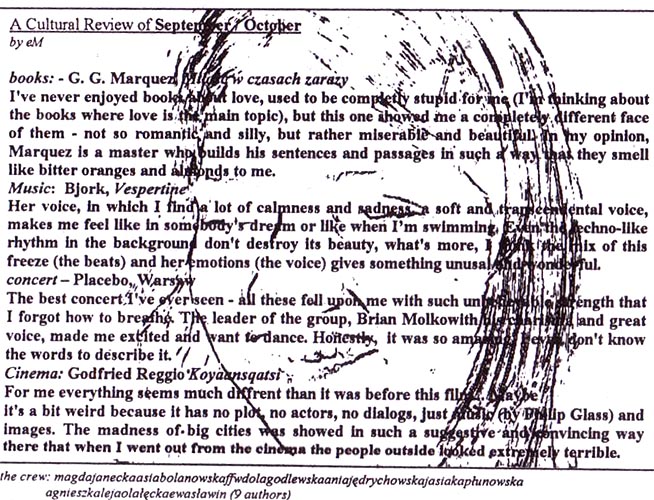 A Cultural Review of September / October
by eM
books: - G. G. Marquez, Miłość w czasach zarazy
I've never enjoyed books about love, used to be completly stupid for me (I'm thinking about
the books where love is the main topic), but this one showed me a completely different face
of them - not so romantic and silly, but rather miserable and beautiful. In my opinion,
Marquez is a master who builds his sentences and passages in such a way that they smell
like bitter oranges and almonds to me.
Music: Bjork, Vespertine
Her voice, in which I find a lot of calmness and sadness, a soft and transcendental voice,
makes me feel like in somebody's dream or like when I'm swimming. Even the techno-like
rhythm in the background don't destroy its beauty, what's more, I think the mix of this
freeze (the beats) and her emotions (the voice) gives something unusal and wonderful.
concert – Placebo, Warsaw
The best concert I've ever seen - all these fell upon me with such unbelievable strength that
I forgot how to breathe. The leader of the group, Brian Molkowith his charisma and great
voice, made me excited and want to dance. Honestly, it was so amazing, I even don't know
the words to describe it.
Cinema: Godfried Reggio Koyaansqatsi
For me everything seems much diffrent than it was before this film. Maybe
it's a bit weird because it has no plot, no actors, no dialogs, just music (by Philip Glass) and
images. The madness of big cities was showed in such a suggestive and convincing way
there that when I went out from the cinema the people outside looked extremely terrible.
the crew: magdajaneckaasiabolanowskaffwdolagodlewskaaniajędrychowskajasiakapłunowska
agnieszkalejaolałęckaewasławin (9 authors)